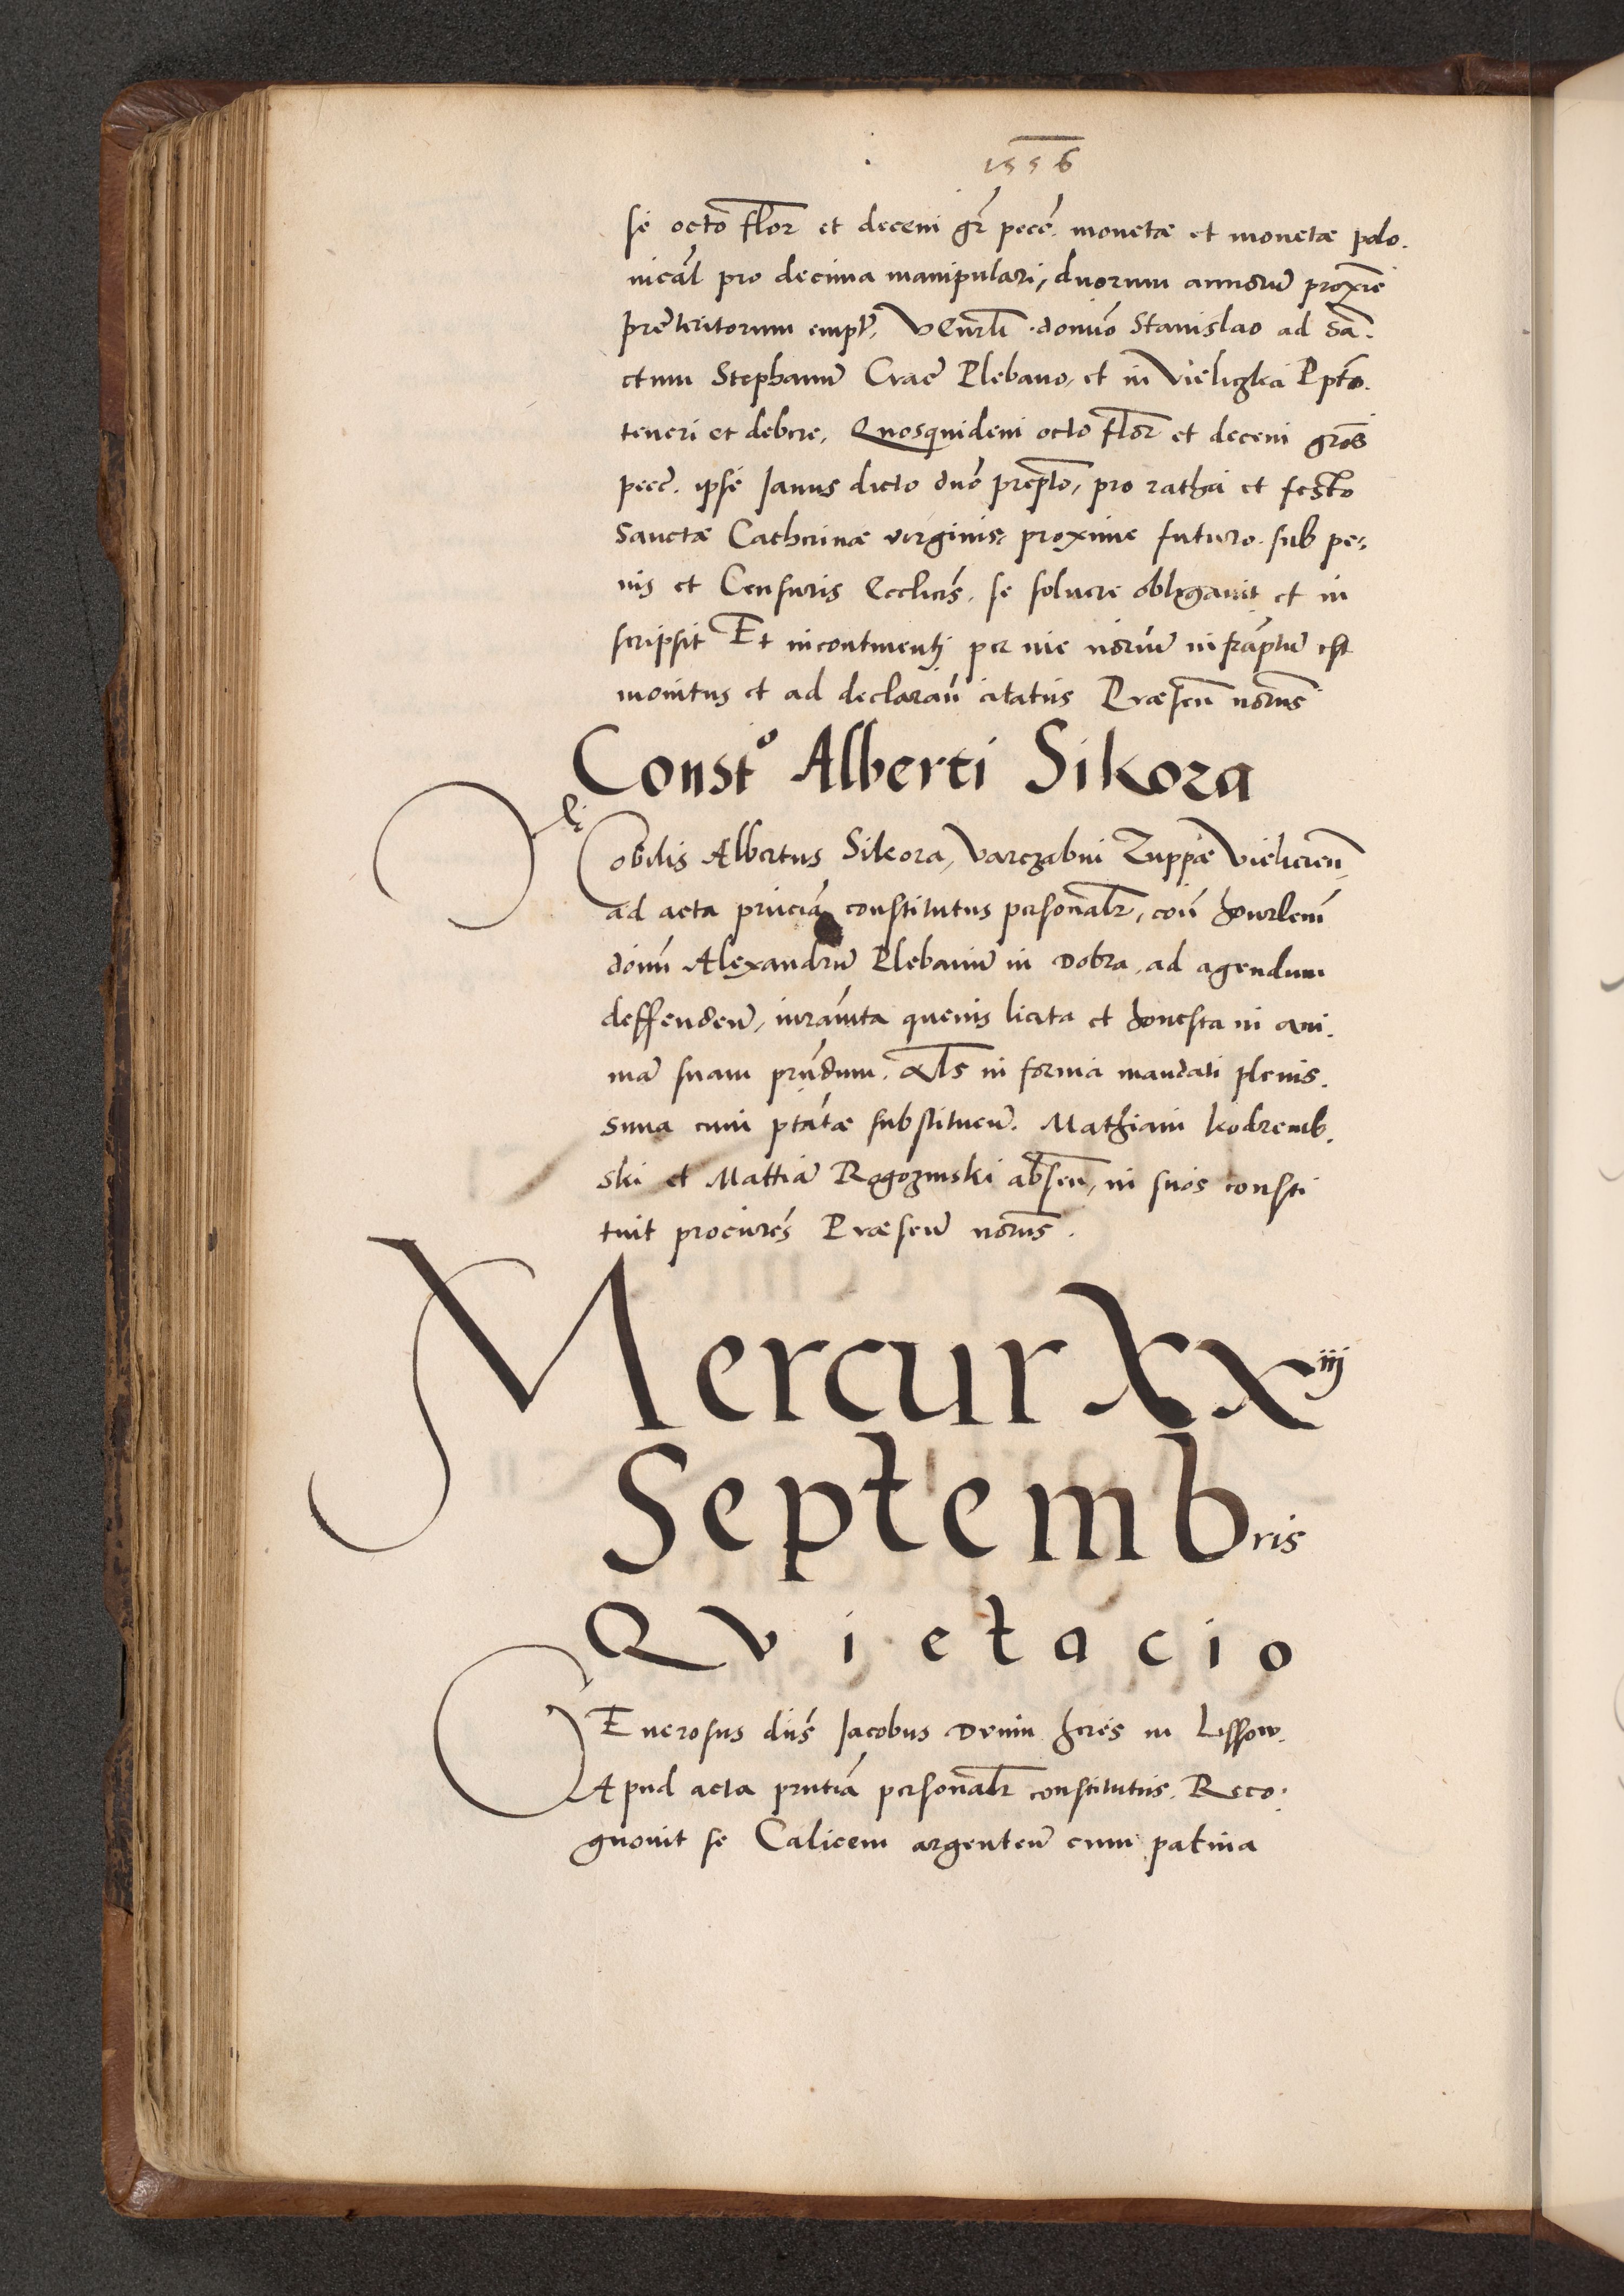 1556
se octo flor et decem gr pece. monetæ et monetæ polo.
nical pro decima manipulari, duorum annorū proxīe
preteritorum empt, Venrli dominō Stanislao ad Sā.
ctum Stephanū Crac Plebano, et in Vieliczka Ppto.
teneri et debere, Quosquidem octo flor et decem gros
pece. ipse Janus dicto dnō prepto, pro ratha et festo
Sanctæ Catherinæ virginis, proxime futuro. sub pe:
nis et Censuris Ecclicis. se soluere obligauit et in
scripsit Et incontinenti per me norium infraptum est
monitus et ad declarań citatus Præsen norus
Constᵒ Alberti Sikora
Nobilis Albertus Sikora, Varczabni Zuppæ Vieliciēn
ad acta prńcia constitutus personalr, coū honrlem
domń Alexandrū Plebanū in Dobra, ad agendum
deffendeń, iurāmta queuis licita et honesta in ani.
mā suam prńdum. Als in forma mandati plenis.
sima cum ptatæ substituēn. Mathiam kodremb.
ski et Mattiā Rogozinski absen, in suos consti
tuit procures Præsen norus.
Mercur XXiij
Septembris
Qvietacio
GEnerosus dńs Jacobus Dunin heres in Lissow.
Apud acta prntia personalr constitutus. Reco.
gnouit se Calicem argenteū cum patina